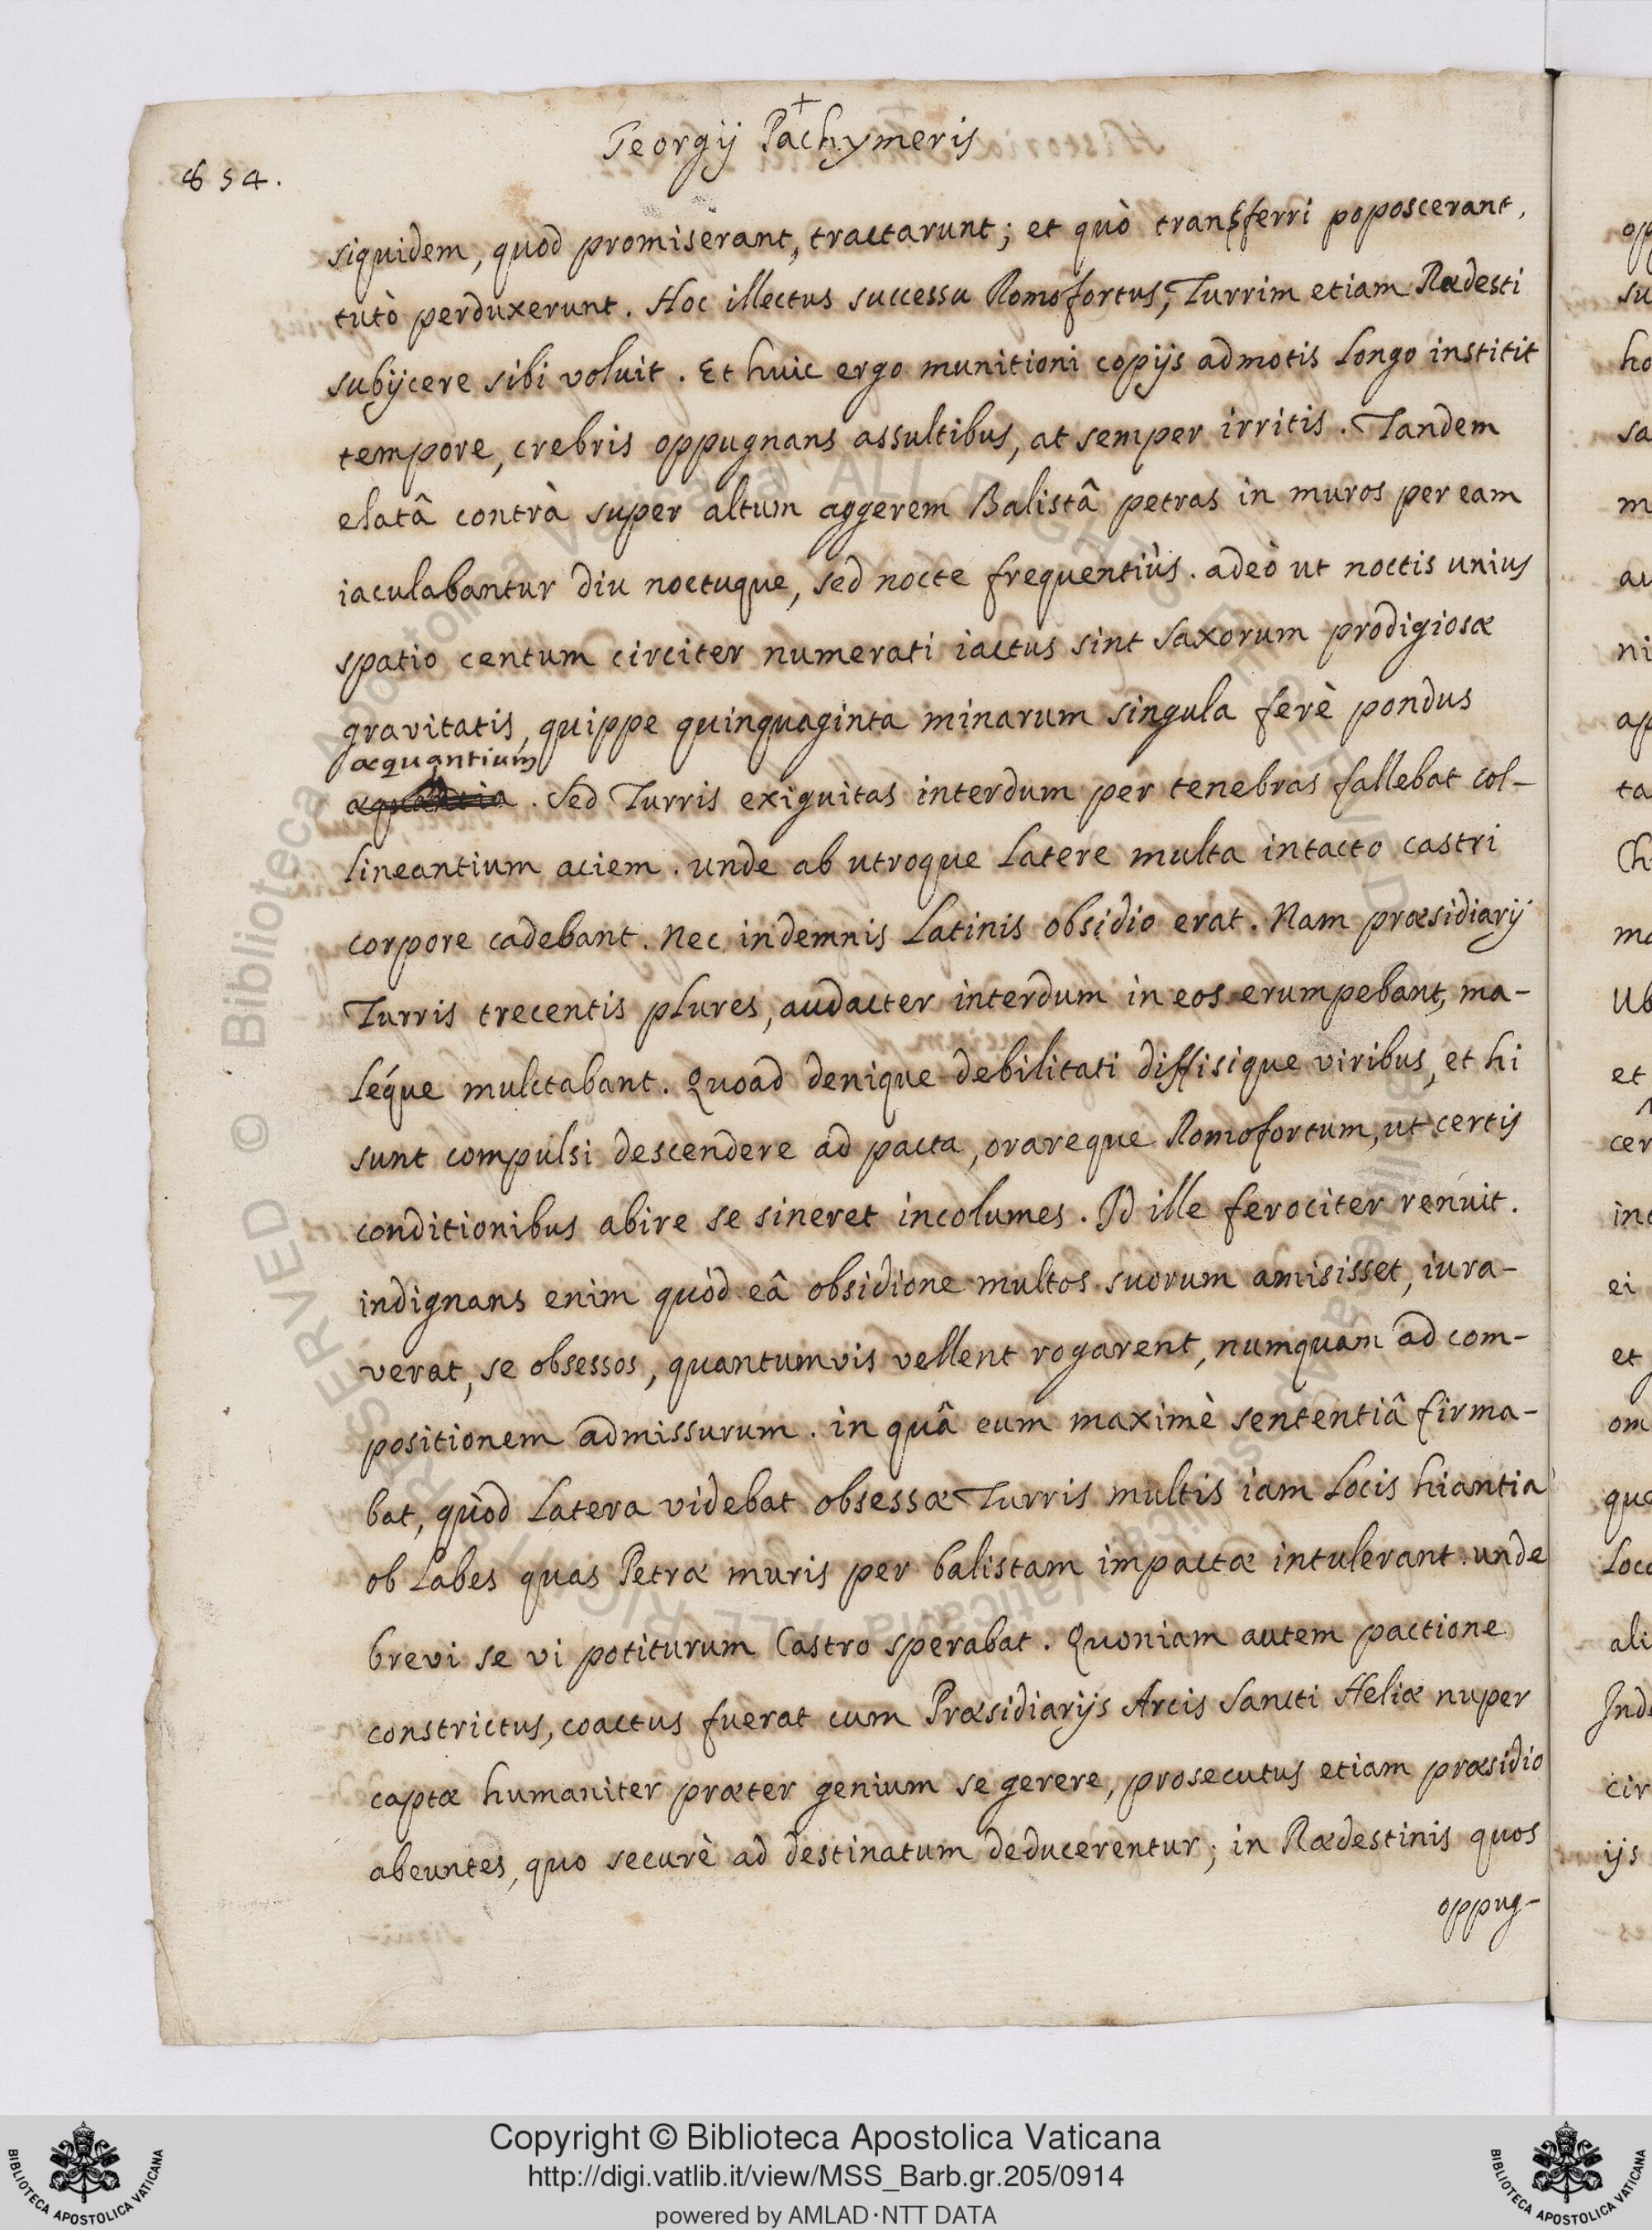 +
Georgij Pachymeris
854.
siquidem, quod promiserant, tractarunt; et quò transferri poposcerant,
tutò perduxerunt. Hoc illectus successu Romofortus, Turrim etiam Rædesti
subijcere sibi voluit. Et huic ergo munitioni copijs admotis longo institit
tempore, crebris oppugnans assultibus, at semper irritis. Tandem
elatâ contrà super altum aggerem Balistâ petras in muros per eam
iaculabantur diu noctuque, sed nocte frequentiùs. adeò ut noctis unius
spatio centum circiter numerati iactus sint saxorum prodigiosæ
gravitatis, quippe quinquaginta minarum singula ferè pondus
æquantium
æquantia. Sed Turris exiguitas interdum per tenebras fallebat col-
lineantium aciem. unde ab utroque latere multa intacto castri
corpore cadebant. Nec indemnis Latinis obsidio erat. Nam præsidiarij
Turris trecentis plures, audacter interdum in eos erumpebant, ma-
léque mulctabant. Quoad denique debilitati diffisique viribus, et hi
sunt compulsi descendere ad pacta, orareque Romofortum, ut certis
conditionibus abire se sineret incolumes. Id ille ferociter renuit.
indignans enim quòd eâ obsidione multos suorum amisisset, iura-
verat, se obsessos, quantumvis vellent rogarent, numquam ad com-
positionem admissurum. in quâ eum maximè sententiâ firma-
bat, quòd latera videbat obsessæ Turris multis iam locis hiantia
ob labes quas Petræ muris per balistam impactæ intulerant. unde
brevi se vi potiturum Castro sperabat. Quoniam autem pactione
constrictus, coactus fuerat cum Præsidiarijs Arcis Sancti Heliæ nuper
captæ humaniter præter genium se gerere, prosecutus etiam præsidio
abeuntes, quo securè ad destinatum deducerentur; in Rædestinis quos
oppug-
Copyright © Biblioteca Apostolica Vaticana
http://digi.vatlib.it/view/MSS_Barb.gr.205/0914
powered by AMLAD·NTT DATA
BIBLIOTECA APOSTOLICA VATICANA
BIBLIOTECA APOSTOLICA VATICANA